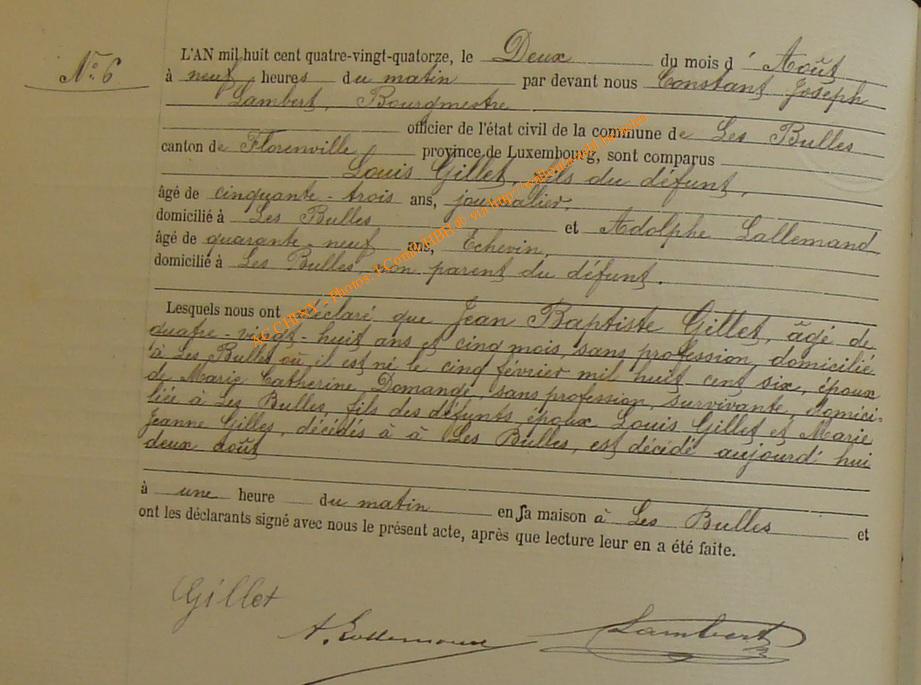 N° 6
L'AN mil huit cent quatre-vingt-quatorze, le Deux du mois d' Août
à neuf heures du matin par devant nous Constant Joseph
Lambert, Bourgmestre
officier de l'état civil de la commune de Les Bulles
canton de Florenville province de Luxembourg, sont comparus
Louis Gillet, fils du défunt,
âgé de cinquante-trois ans, journalier,
domicilié à Les Bulles et Adolphe Lallemand
âgé de quarante-neuf ans, Echevin,
domicilié à Les Bulles, non parent du défunt.
Lesquels nous ont déclaré que Jean Baptiste Gillet, âgé de
quatre-vingt-huit ans et cinq mois, sans profession, domicilié
à Les Bulles où il est né le cinq février mil huit cent six, époux
de Marie Catherine Domange, sans profession, survivante, domici-
liée à Les Bulles, fils des défunts époux Louis Gillet et Marie
Jeanne Gilles, décédés à à Les Bulles, est décédé aujourd'hui
deux août
à une heure du matin en sa maison à Les Bulles et
ont les déclarants signé avec nous le présent acte, après que lecture leur en a été faite.
Gillet
A. Lallemand Lambert
AC CHINY - Photos: